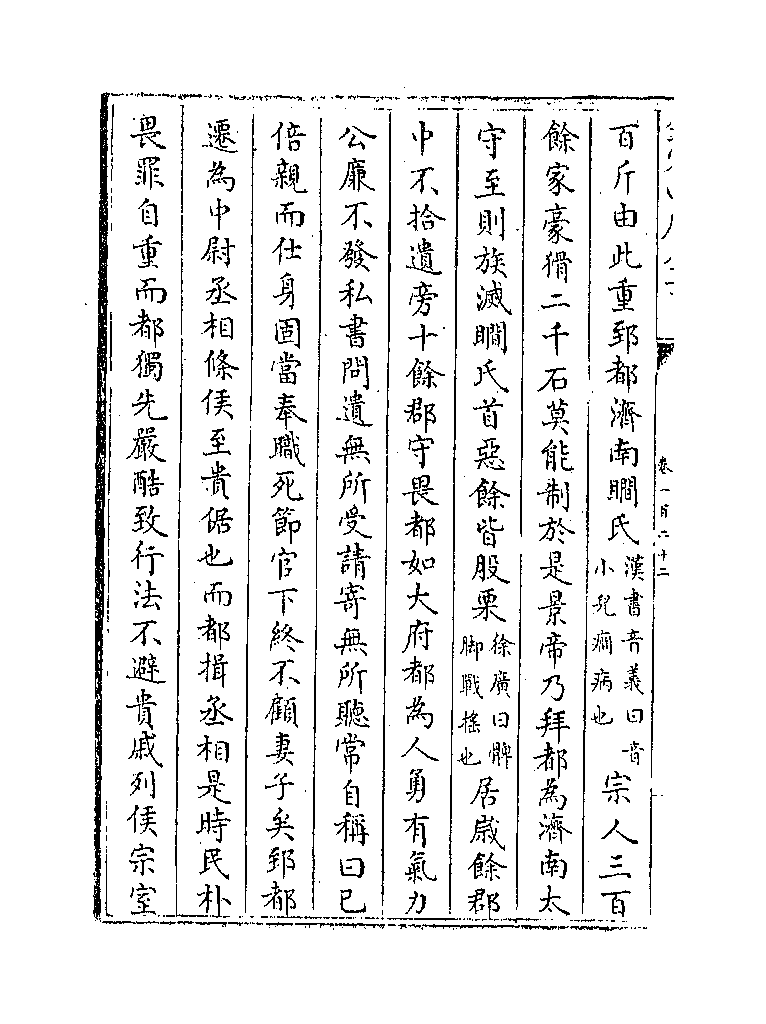 百斤由此重郅都濟南瞷氏漢書音義曰音小兒癎病也宗人三百
餘家豪猾二千石莫能制於是景帝乃拜都為濟南太
守至則族滅瞷氏首惡餘皆股栗徐廣曰髀脚戰搖也居歲餘郡
中不拾遺旁十餘郡守畏都如大府都為人勇有氣力
公廉不發私書問遺無所受請寄無所聽常自稱曰已
倍親而仕身固當奉職死節官下終不顧妻子矣郅都
遷為中尉丞相條侯至貴倨也而都揖丞相是時民朴
畏罪自重而都獨先嚴酷致行法不避貴戚列侯宗室
卷一百二十二